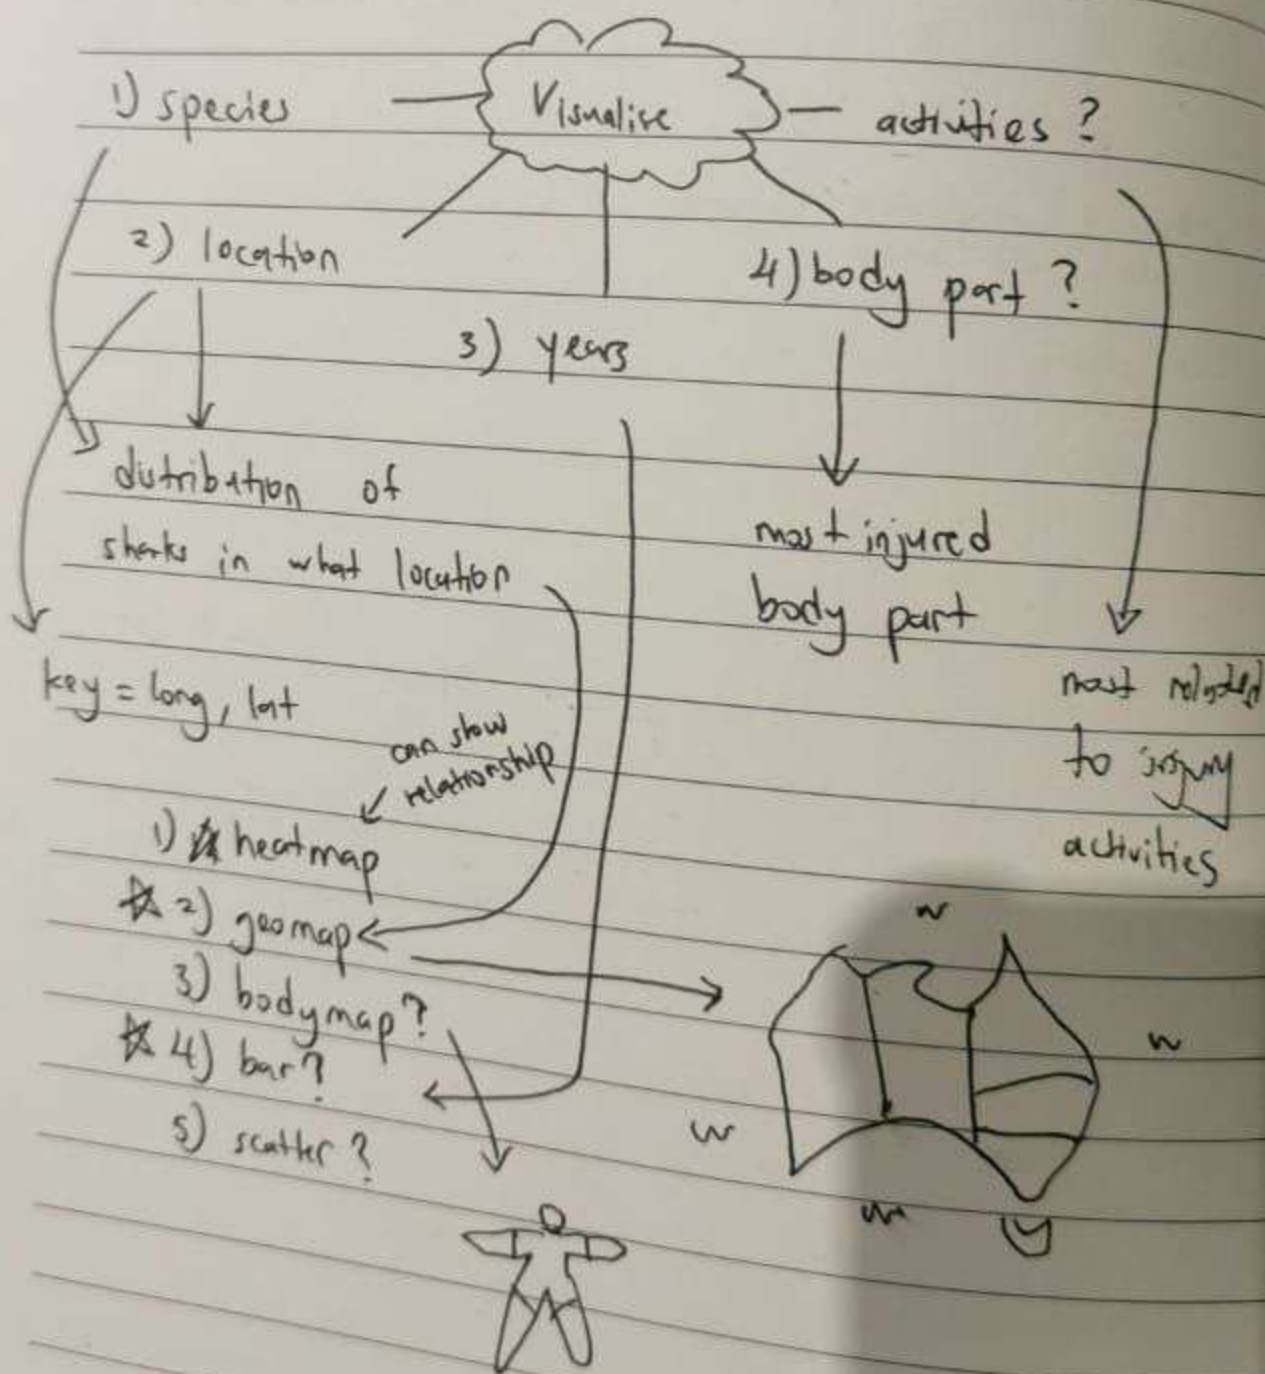 1) species
Visualise
activities ?
2) location
4) body part ?
3) years
distribution of
sharks in what location
most injured
body part
key = long, lat
most related
to injury
activities
can show
relationship
1) heatmap
2) geomap
3) bodymap?
4) bar?
5) scatter ?